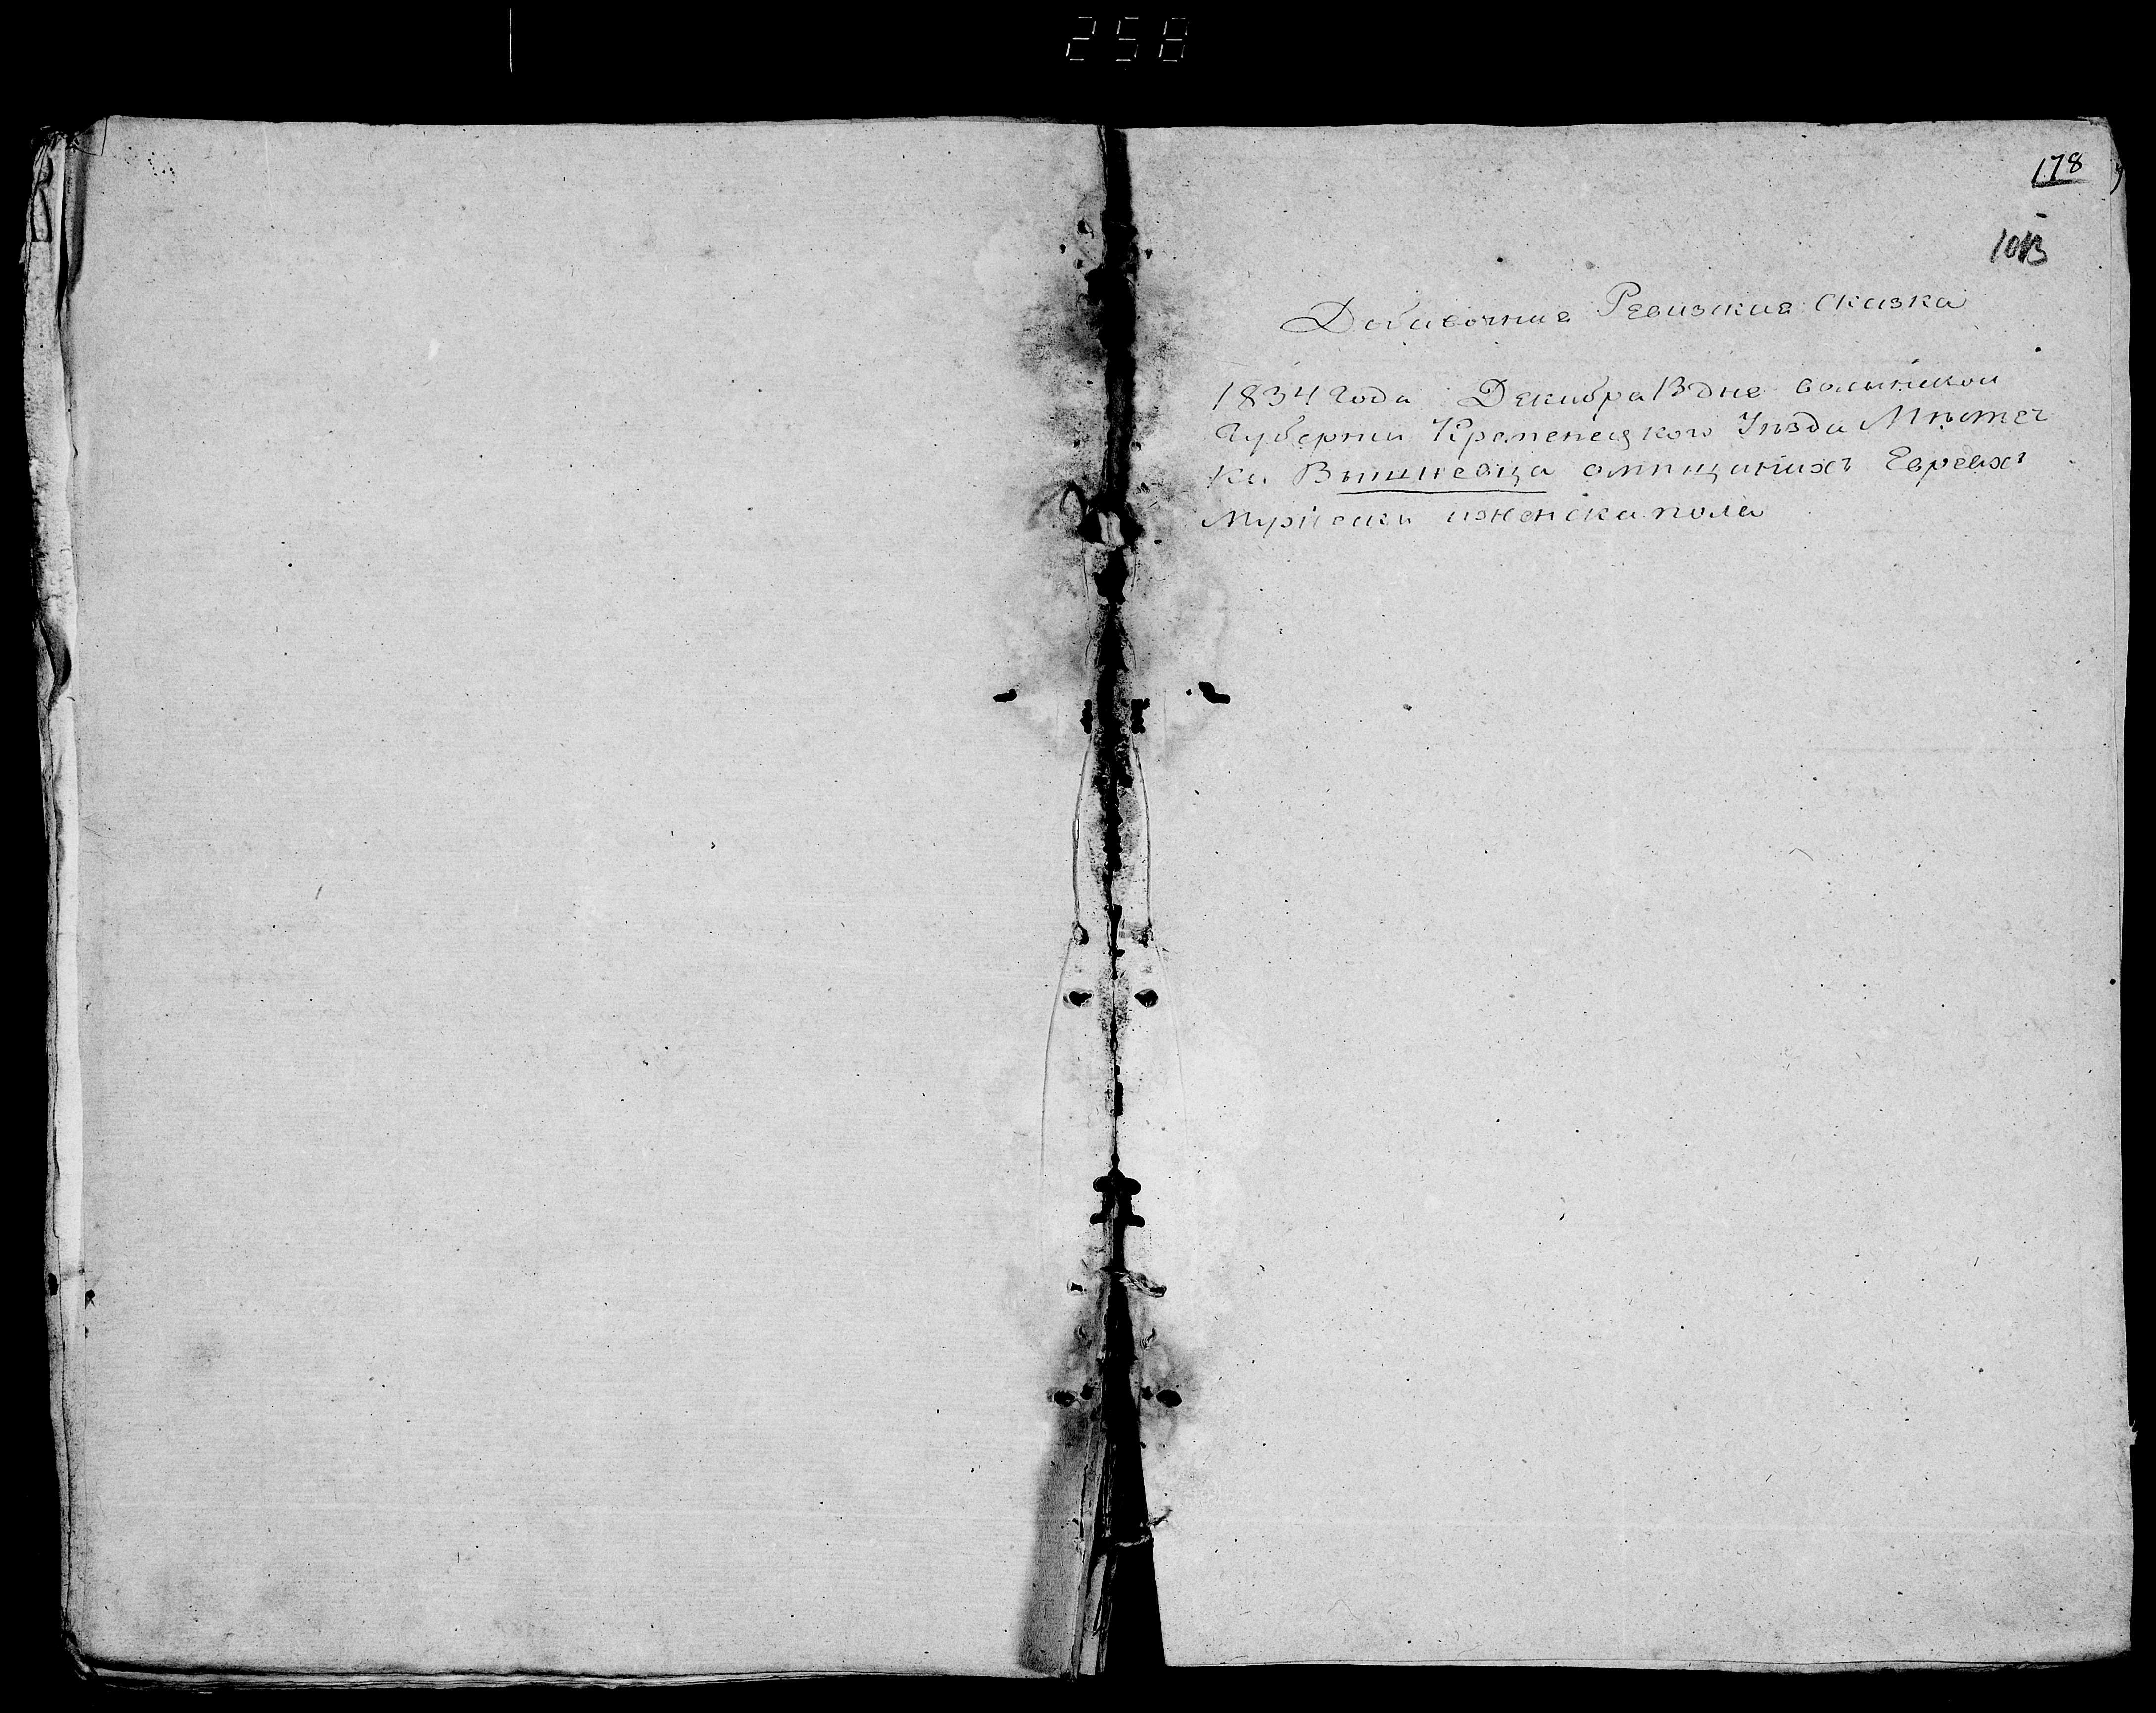 258
178
Добавочная Ревизская сказка
1834 года Декабра 13 дне волынской
Губернии Кременецкого Уѣзда Мѣстеч
ка Вышневца омѣщанахъ Евреяхъ
Мужеска иженска пола